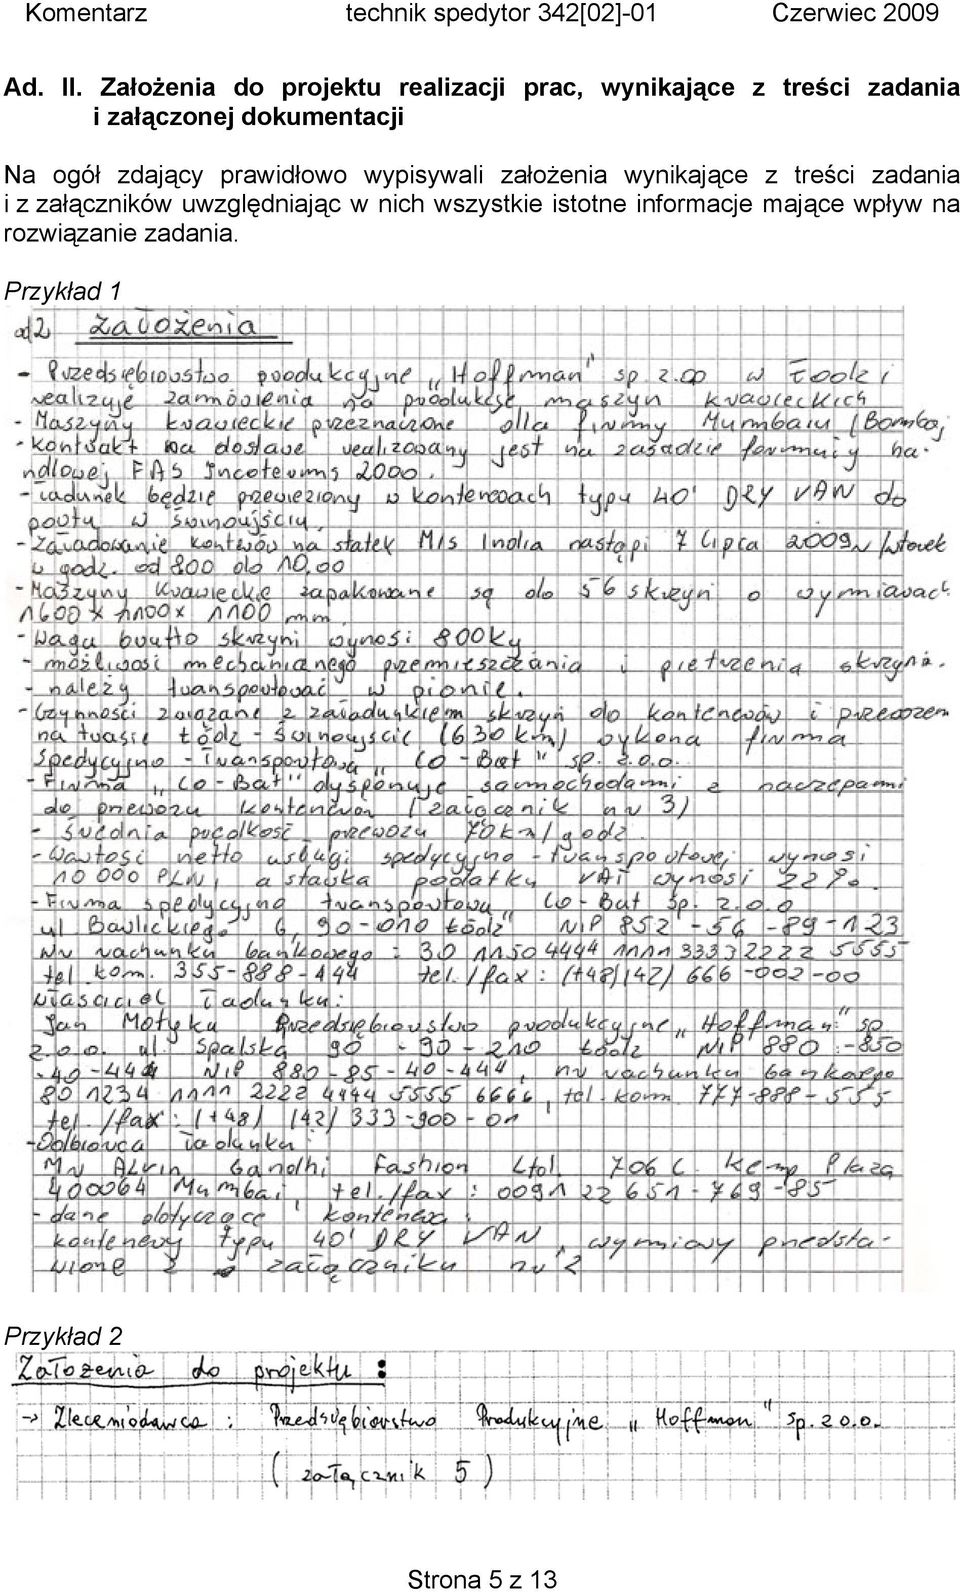 Komentarz technik spedytor 342[02]-01 Czerwiec 2009
Ad. II. Założenia do projektu realizacji prac, wynikające z treści zadania
i załączonej dokumentacji
Na ogół zdający prawidłowo wypisywali założenia wynikające z treści zadania
i z załączników uwzględniając w nich wszystkie istotne informacje mające wpływ na
rozwiązanie zadania.
Przykład 1
ad2 Założenia
- Przedsiębiorstwo produkcyjne „Hoffman" sp. z.oo w Łodzi
realizuje zamówienia na produkcje maszyn krawieckich
- Maszyny krawieckie przeznaczone dla firmy Mumbaiu (Bombaj
- Kontrakt na dostawe realizowany jest na zasadzie formuły ha-
ndlowej FAS Incoterms 2000.
- Ładunek będzie przewieziony w konterach typu 40' DRY VAN do
portu w Świnoujściu.
- Załadowanie kontrów na statek M/s India nastąpi 7 Lipca 2009r /wtorek
w godz. od 800 do 10.00
- Maszyny Krawieckie zapakowane są do 56 skrzyń o wymiarach
1600 x 1100 x 1100 mm.
- Waga brutto skrzyni wynosi 800kg
- możliwość mechanicznego przemieszczania i piętrzenia skrzynia.
- należy transportować w pionie.
- Czynności związane z załadunkiem skrzyń do kontenerów i przewozem
na trasie Łódź - Świnoujście (630 km) wykona firma
Spedycyjno - Transportowa „Co - Bat" sp. z.o.o.
- Firma „Co - Bat" dysponuje samochodami z naczepami
do przewozu kontenerów (załącznik nr 3)
- Średnia prędkość przewozu 70km/godz.
- Wartość netto usługi spedycyjno - transportowej wynosi
10 000 PLN, a stawka podatku VAT wynosi 22%.
- Firma spedycyjno transportowa „Co - Bat sp. z.o.o
ul 6, 90-010 Łódź NIP 852 - 56 - 89 - 123
Nr rachunku bankowego : 30 1150 4444 1111 3333 2222 5555
tel. kom. 355-888-444 tel. /fax : (+48) (42) 666 -002 -00
właściciel ładunku:
Jan Motyka Przedsiębiorstwo produkcyjne „Hoffman" sp
z.o.o. ul. Spalska 90 - 90 - 210 Łódź NIP 880 - 850
- 40 - 444 NIP 880 - 85 - 40 - 444, nr rachunku bankowego
80 1234 1111 2222 4444 5555 6666, tel. kom. 777-888-555
tel. /fax : (+48) (42) 333 -900 - 01
- Odbiorca ładunku:
Mr Alvin Gandhi Fashion Ltd. 706 C. Kemp Plaza
400064 Mumbai, tel. /fax : 0091 22 651 - 769 -85
- dane dotyczące kontenera:
kontenery typu 40' DRY VAN, wymiary przedsta-
wione z załączniku nr 2
Przykład 2
Założenia do projektu :
→ Zleceniodawca : Przedsiębiorstwo Produkcyjne „Hoffman" sp. z o.o.
( załącznik 5 )
Strona 5 z 13